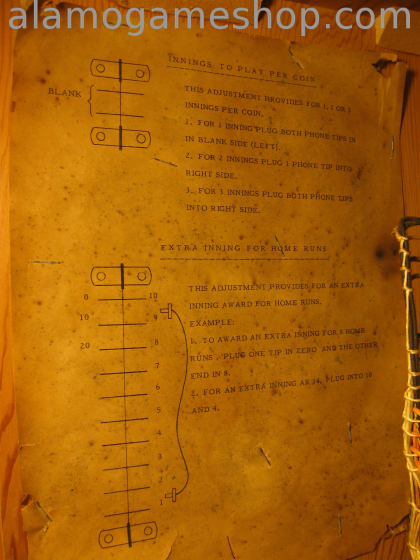 alamogameshop.com
INNINGS TO PLAY PER COIN
BLANK
THIS ADJUSTMENT PROVIDES FOR 1, 2 OR 3
INNINGS PER COIN.
1. FOR 1 INNING PLUG BOTH PHONE TIPS IN
IN BLANK SIDE (LEFT).
2. FOR 2 INNINGS PLUG 1 PHONE TIP INTO
RIGHT SIDE.
3. FOR 3 INNINGS PLUG BOTH PHONE TIPS
INTO RIGHT SIDE.
EXTRA INNING FOR HOME RUNS
THIS ADJUSTMENT PROVIDES FOR AN EXTRA
INNING AWARD FOR HOME RUNS.
EXAMPLE:
1. TO AWARD AN EXTRA INNING FOR 8 HOME
RUNS, PLUG ONE TIP IN ZERO AND THE OTHER
END IN 8.
2. FOR AN EXTRA INNING AT 14, PLUG INTO 10
AND 4.
0 10
10 9
20 8
7
6
5
4
3
2
1